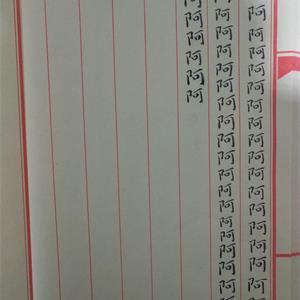 阿阿阿阿阿阿阿阿阿阿阿阿阿阿阿阿
阿阿阿阿阿阿阿阿阿阿阿阿阿阿阿阿阿阿
阿阿阿阿阿阿